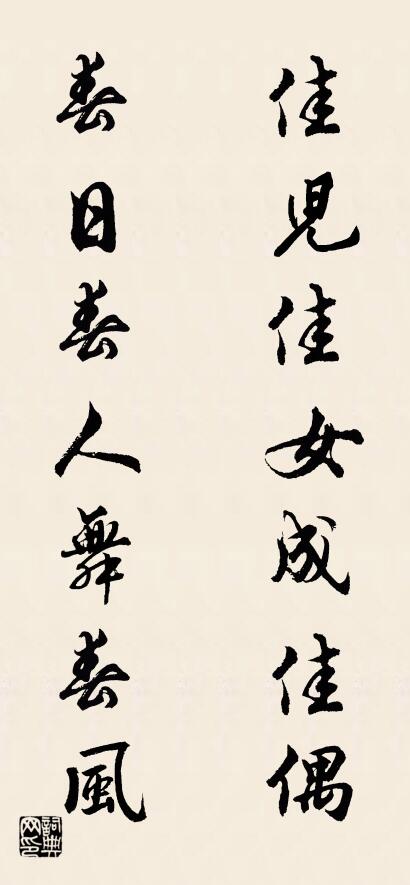 佳児佳女成佳偶
春日春人舞春風
詞典网印